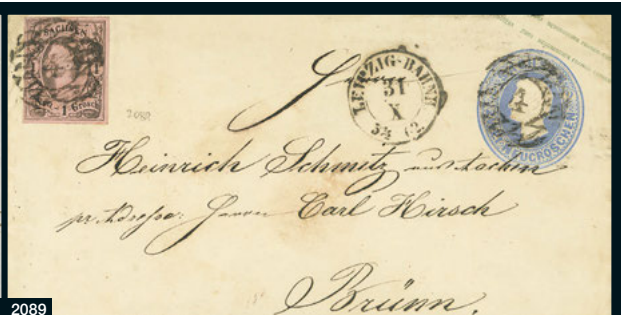 SACHSEN
1 Grosch
LEIPZIG-BAHNH
31
X
5¾ 62
4
NEUGROSCHEN
2089
Heinrich Schmitz aus Aachen
pr. Adresse: Herrn Carl Hirsch
Brünn.
2089